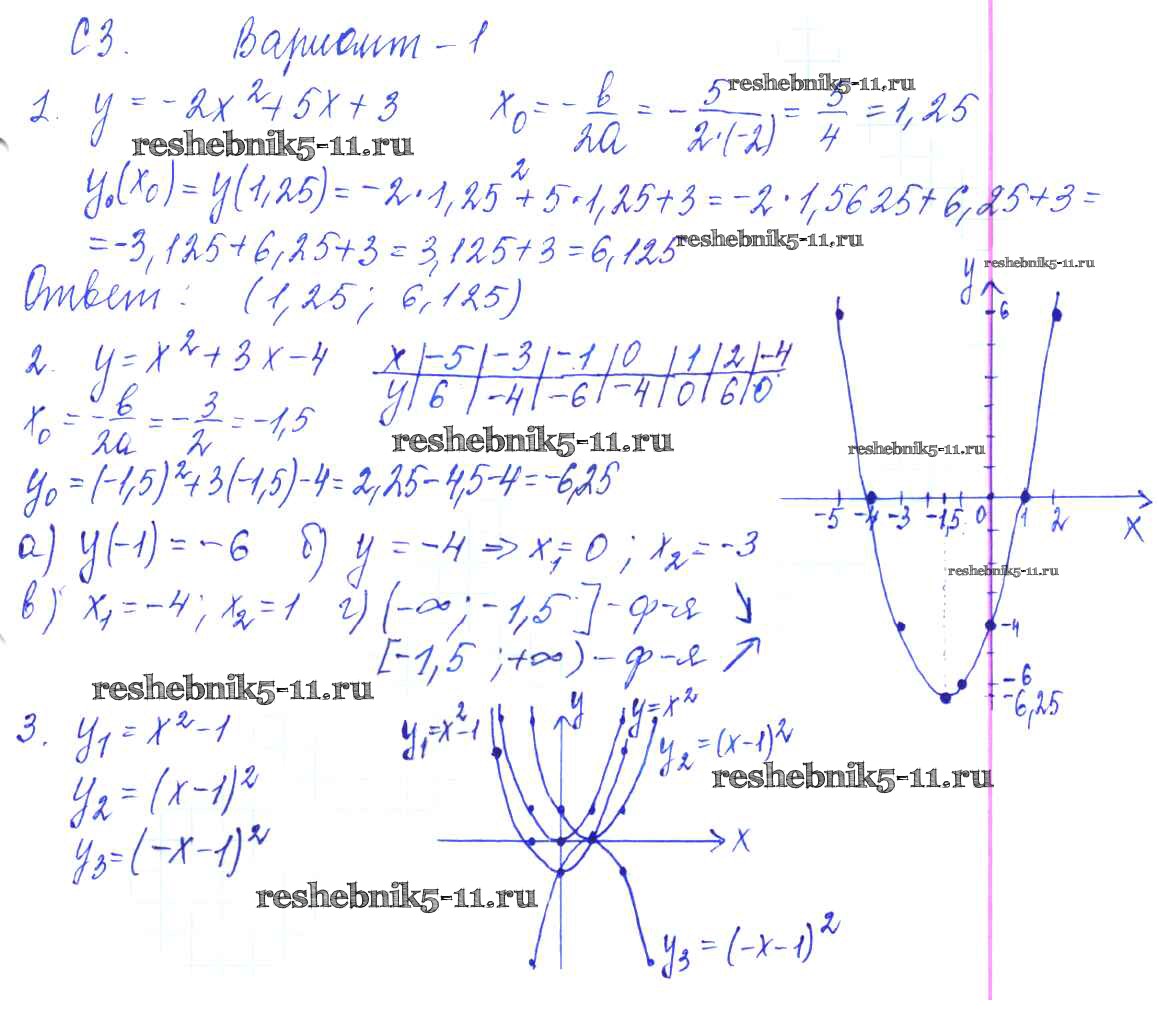 С3. Вариант - 1
reshebnik5-11.ru
1. y = -2x² + 5x + 3 x₀ = -b/2a = -5/(2·(-2)) = 5/4 = 1,25
reshebnik5-11.ru
y₀(x₀) = y(1,25) = -2·1,25² + 5·1,25 + 3 = -2·1,5625 + 6,25 + 3 =
= -3,125 + 6,25 + 3 = 3,125 + 3 = 6,125
reshebnik5-11.ru
reshebnik5-11.ru
Ответ: (1,25; 6,125)
2. y = x² + 3x - 4
x | -5 | -3 | -1 | 0 | 1 | 2 | -4
y | 6 | -4 | -6 | -4 | 0 | 6 | 0
x₀ = -b/2a = -3/2 = -1,5
reshebnik5-11.ru
y₀ = (-1,5)² + 3(-1,5) - 4 = 2,25 - 4,5 - 4 = -6,25
а) y(-1) = -6 б) y = -4 ⇒ x₁ = 0; x₂ = -3
в) x₁ = -4; x₂ = 1 г) (-∞; -1,5] - ф-я ↘
[-1,5; +∞) - ф-я ↗
reshebnik5-11.ru
y
6
reshebnik5-11.ru
-5 -4 -3 -1,5 0 1 2
x
reshebnik5-11.ru
-4
-6
-6,25
3. y₁ = x² - 1
y₂ = (x - 1)²
y₃ = (-x - 1)²
reshebnik5-11.ru
y₁ = x² - 1
y
y = x²
y₂ = (x - 1)²
reshebnik5-11.ru
x
y₃ = (-x - 1)²